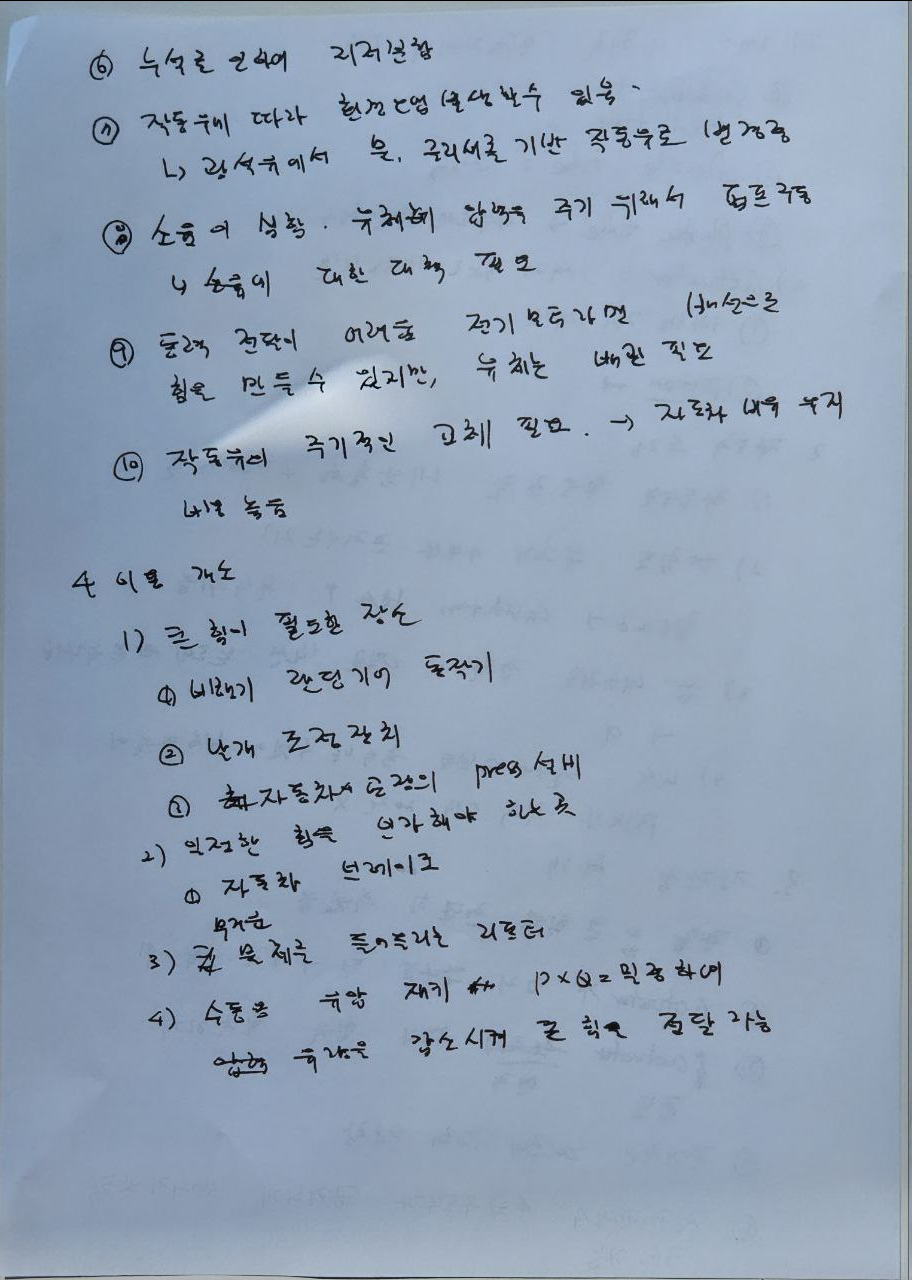 ⑥ 누설로 인하여 지저분함
⑦ 작동유에 따라 환경오염 발생할 수 있음.
↳ 광석유에서 물, 글리세롤 기반 작동유로 변경중
⑧ 소음이 심함. 유체에 압력을 주기 위해서 펌프 구동
↳ 소음에 대한 대책 필요
⑨ 동력 전달이 어려움 전기모터라면 배선으로
힘을 만들 수 있지만, 유체는 배관 필요
⑩ 작동유의 주기적인 교체 필요. → 자동차 비유 유지
비용 높음
4 이용 개소
1) 큰 힘이 필요한 장소
① 비행기 랜딩기어 동작기
② 날개 조정장치
③ 자동차 공장의 press 설비
2) 일정한 힘을 부가해야 하는 곳
① 자동차 브레이크
무거운
3) 물체를 들어올리는 리프터
4) 수동용 유압 재키 P×Q= 일정하여
유량을 감소시켜 큰 힘을 전달 가능